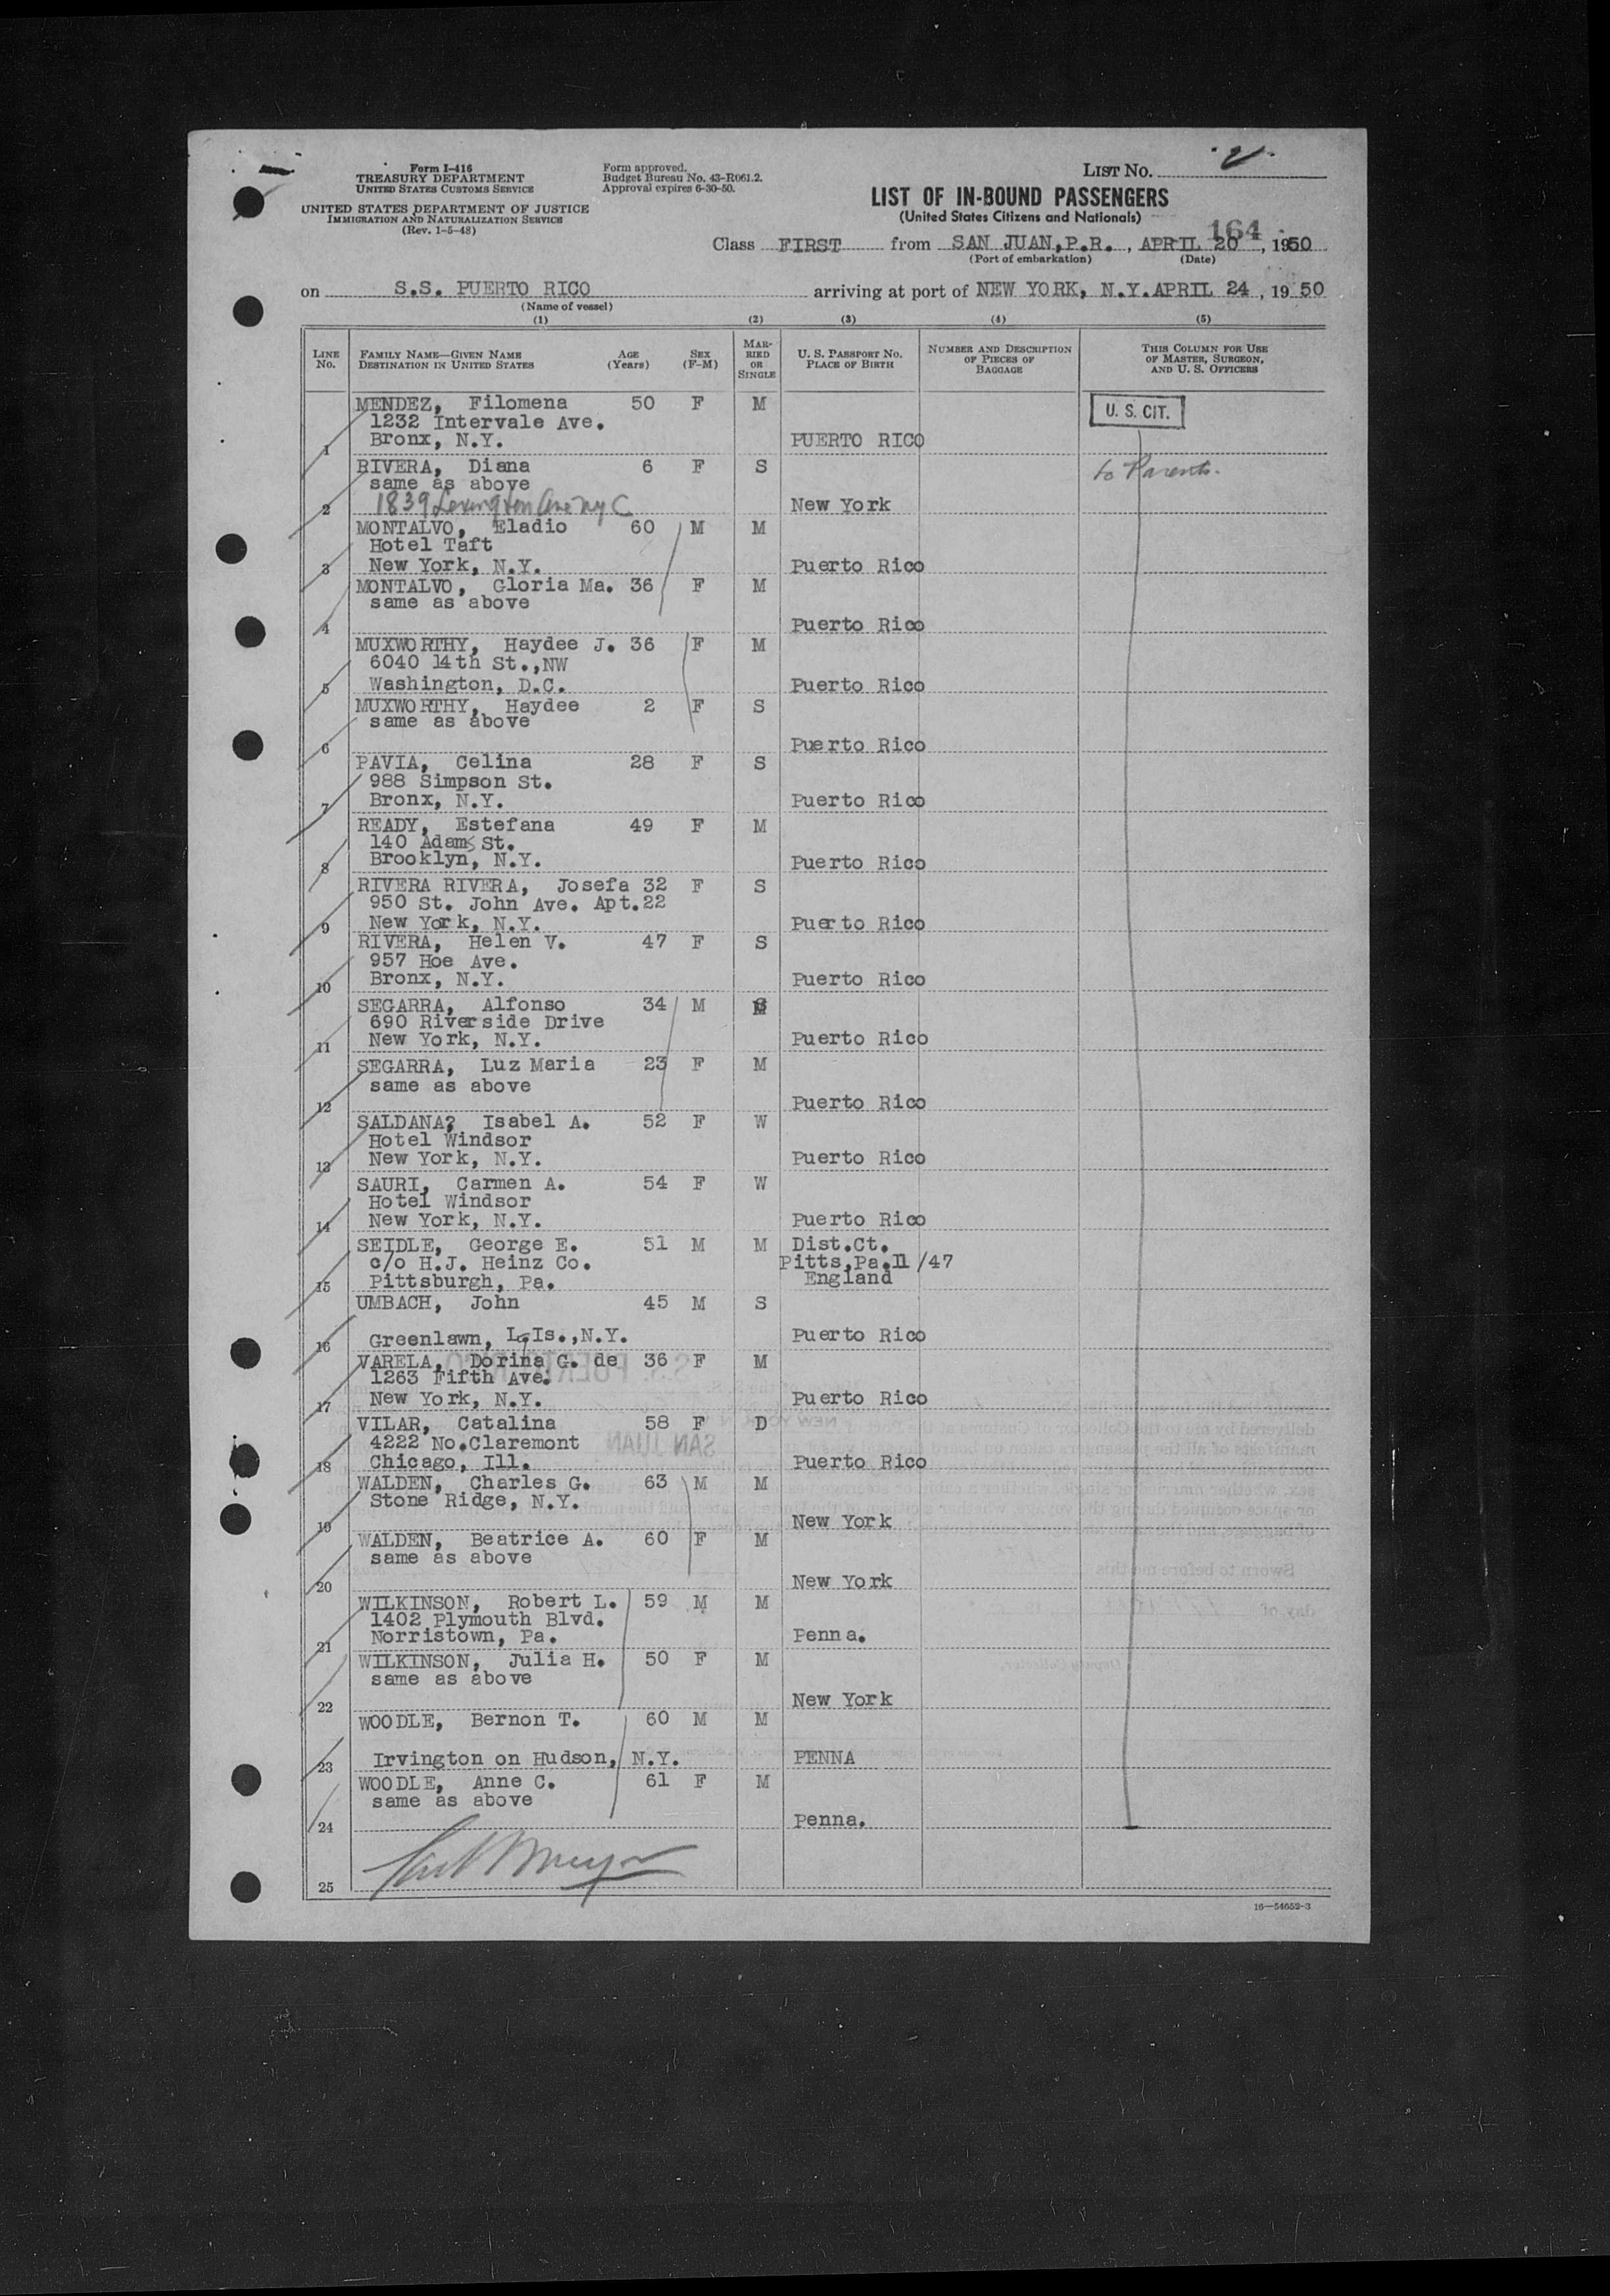 Form I-416
TREASURY DEPARTMENT
UNITED STATES CUSTOMS SERVICE
UNITED STATES DEPARTMENT OF JUSTICE
IMMIGRATION AND NATURALIZATION SERVICE
(Rev. 1-5-48)
Form approved.
Budget Bureau No. 43-R061.2.
Approval expires 6-30-50.
LIST No. 2
LIST OF IN-BOUND PASSENGERS
(United States Citizens and Nationals)
164
Class FIRST from SAN JUAN, P.R., APRIL 20, 1950
(Port of embarkation) (Date)
on S.S. PUERTO RICO arriving at port of NEW YORK, N.Y. APRIL 24, 1950
(Name of vessel)
(1) (2) (3) (4) (5)
LINE No. FAMILY NAME—GIVEN NAME DESTINATION IN UNITED STATES AGE (Years) SEX (F-M) MARRIED OR SINGLE U. S. PASSPORT NO. PLACE OF BIRTH NUMBER AND DESCRIPTION OF PIECES OF BAGGAGE THIS COLUMN FOR USE OF MASTER, SURGEON, AND U. S. OFFICERS
MENDEZ, Filomena 50 F M U. S. CIT.
1232 Intervale Ave.
1 Bronx, N.Y. PUERTO RICO
RIVERA, Diana 6 F S to Parents.
same as above
2 1839 Lexington Ave NYC New York
MONTALVO, Eladio 60 M M
Hotel Taft
3 New York, N.Y. Puerto Rico
MONTALVO, Gloria Ma. 36 F M
same as above
4 Puerto Rico
MUXWORTHY, Haydee J. 36 F M
6040 14th St.,NW
5 Washington, D.C. Puerto Rico
MUXWORTHY, Haydee 2 F S
same as above
6 Puerto Rico
PAVIA, Celina 28 F S
988 Simpson St.
7 Bronx, N.Y. Puerto Rico
READY, Estefana 49 F M
140 Adams St.
8 Brooklyn, N.Y. Puerto Rico
RIVERA RIVERA, Josefa 32 F S
950 St. John Ave. Apt.22
9 New York, N.Y. Puerto Rico
RIVERA, Helen V. 47 F S
957 Hoe Ave.
10 Bronx, N.Y. Puerto Rico
SEGARRA, Alfonso 34 M
690 Riverside Drive
11 New York, N.Y. Puerto Rico
SEGARRA, Luz Maria 23 F M
same as above
12 Puerto Rico
SALDANA? Isabel A. 52 F W
Hotel Windsor
13 New York, N.Y. Puerto Rico
SAURI, Carmen A. 54 F W
Hotel Windsor
14 New York, N.Y. Puerto Rico
SEIDLE, George E. 51 M M Dist.Ct.
c/o H.J. Heinz Co. Pitts,Pa.11/47
15 Pittsburgh, Pa. England
UMBACH, John 45 M S
16 Greenlawn, L.Is.,N.Y. Puerto Rico
VARELA, Dorina G. de 36 F M
1263 Fifth Ave.
17 New York, N.Y. Puerto Rico
VILAR, Catalina 58 F D
4222 No.Claremont
18 Chicago, Ill. Puerto Rico
WALDEN, Charles G. 63 M M
Stone Ridge, N.Y.
19 New York
WALDEN, Beatrice A. 60 F M
same as above
20 New York
WILKINSON, Robert L. 59 M M
1402 Plymouth Blvd.
21 Norristown, Pa. Penna.
WILKINSON, Julia H. 50 F M
same as above
22 New York
WOODLE, Bernon T. 60 M M
23 Irvington on Hudson, N.Y. PENNA
WOODLE, Anne C. 61 F M
same as above
24 Penna.
25
16—54652-3